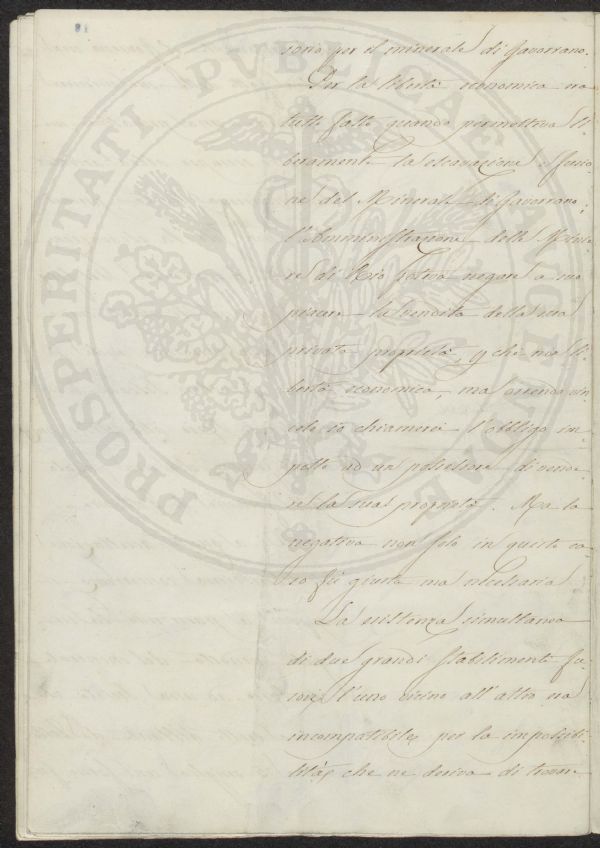 sorio per il minerale di Gavorrano.
Per la libertà economica era
tutto fatto quando permetteva li-
beramente la escavazione e fusio-
ne del Minerale di Gavorrano;
l'Amministrazione delle Minie-
re di Rio poteva negare a suo
piacere la vendita della sua
privata proprietà, chè non li-
bertà economica, ma orrendo vin-
colo io chiamerei l'obbligo im-
posto ad un possessore di vende-
re la sua proprietà. Ma la
negativa non solo in questo ca-
so fù giusta ma necessaria.
La esistenza simultanea
di due grandi stabilimenti fu-
sori l'uno vicino all'altro era
incompatibile per la impossibi-
lità, che ne deriva di trovare
PROSPERITATI PVBLICAE AVGENDAE